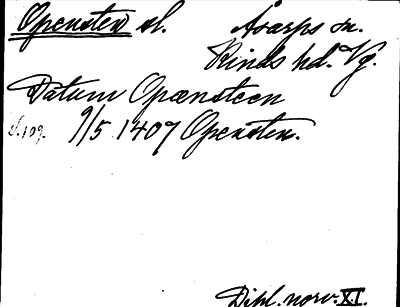 Opensten sl. Åsarps sn.
Kinds hd. Vg.
Datum Opænsteen
s. 109. 9/5 1407 Opensten.
Dipl. norv. XI.